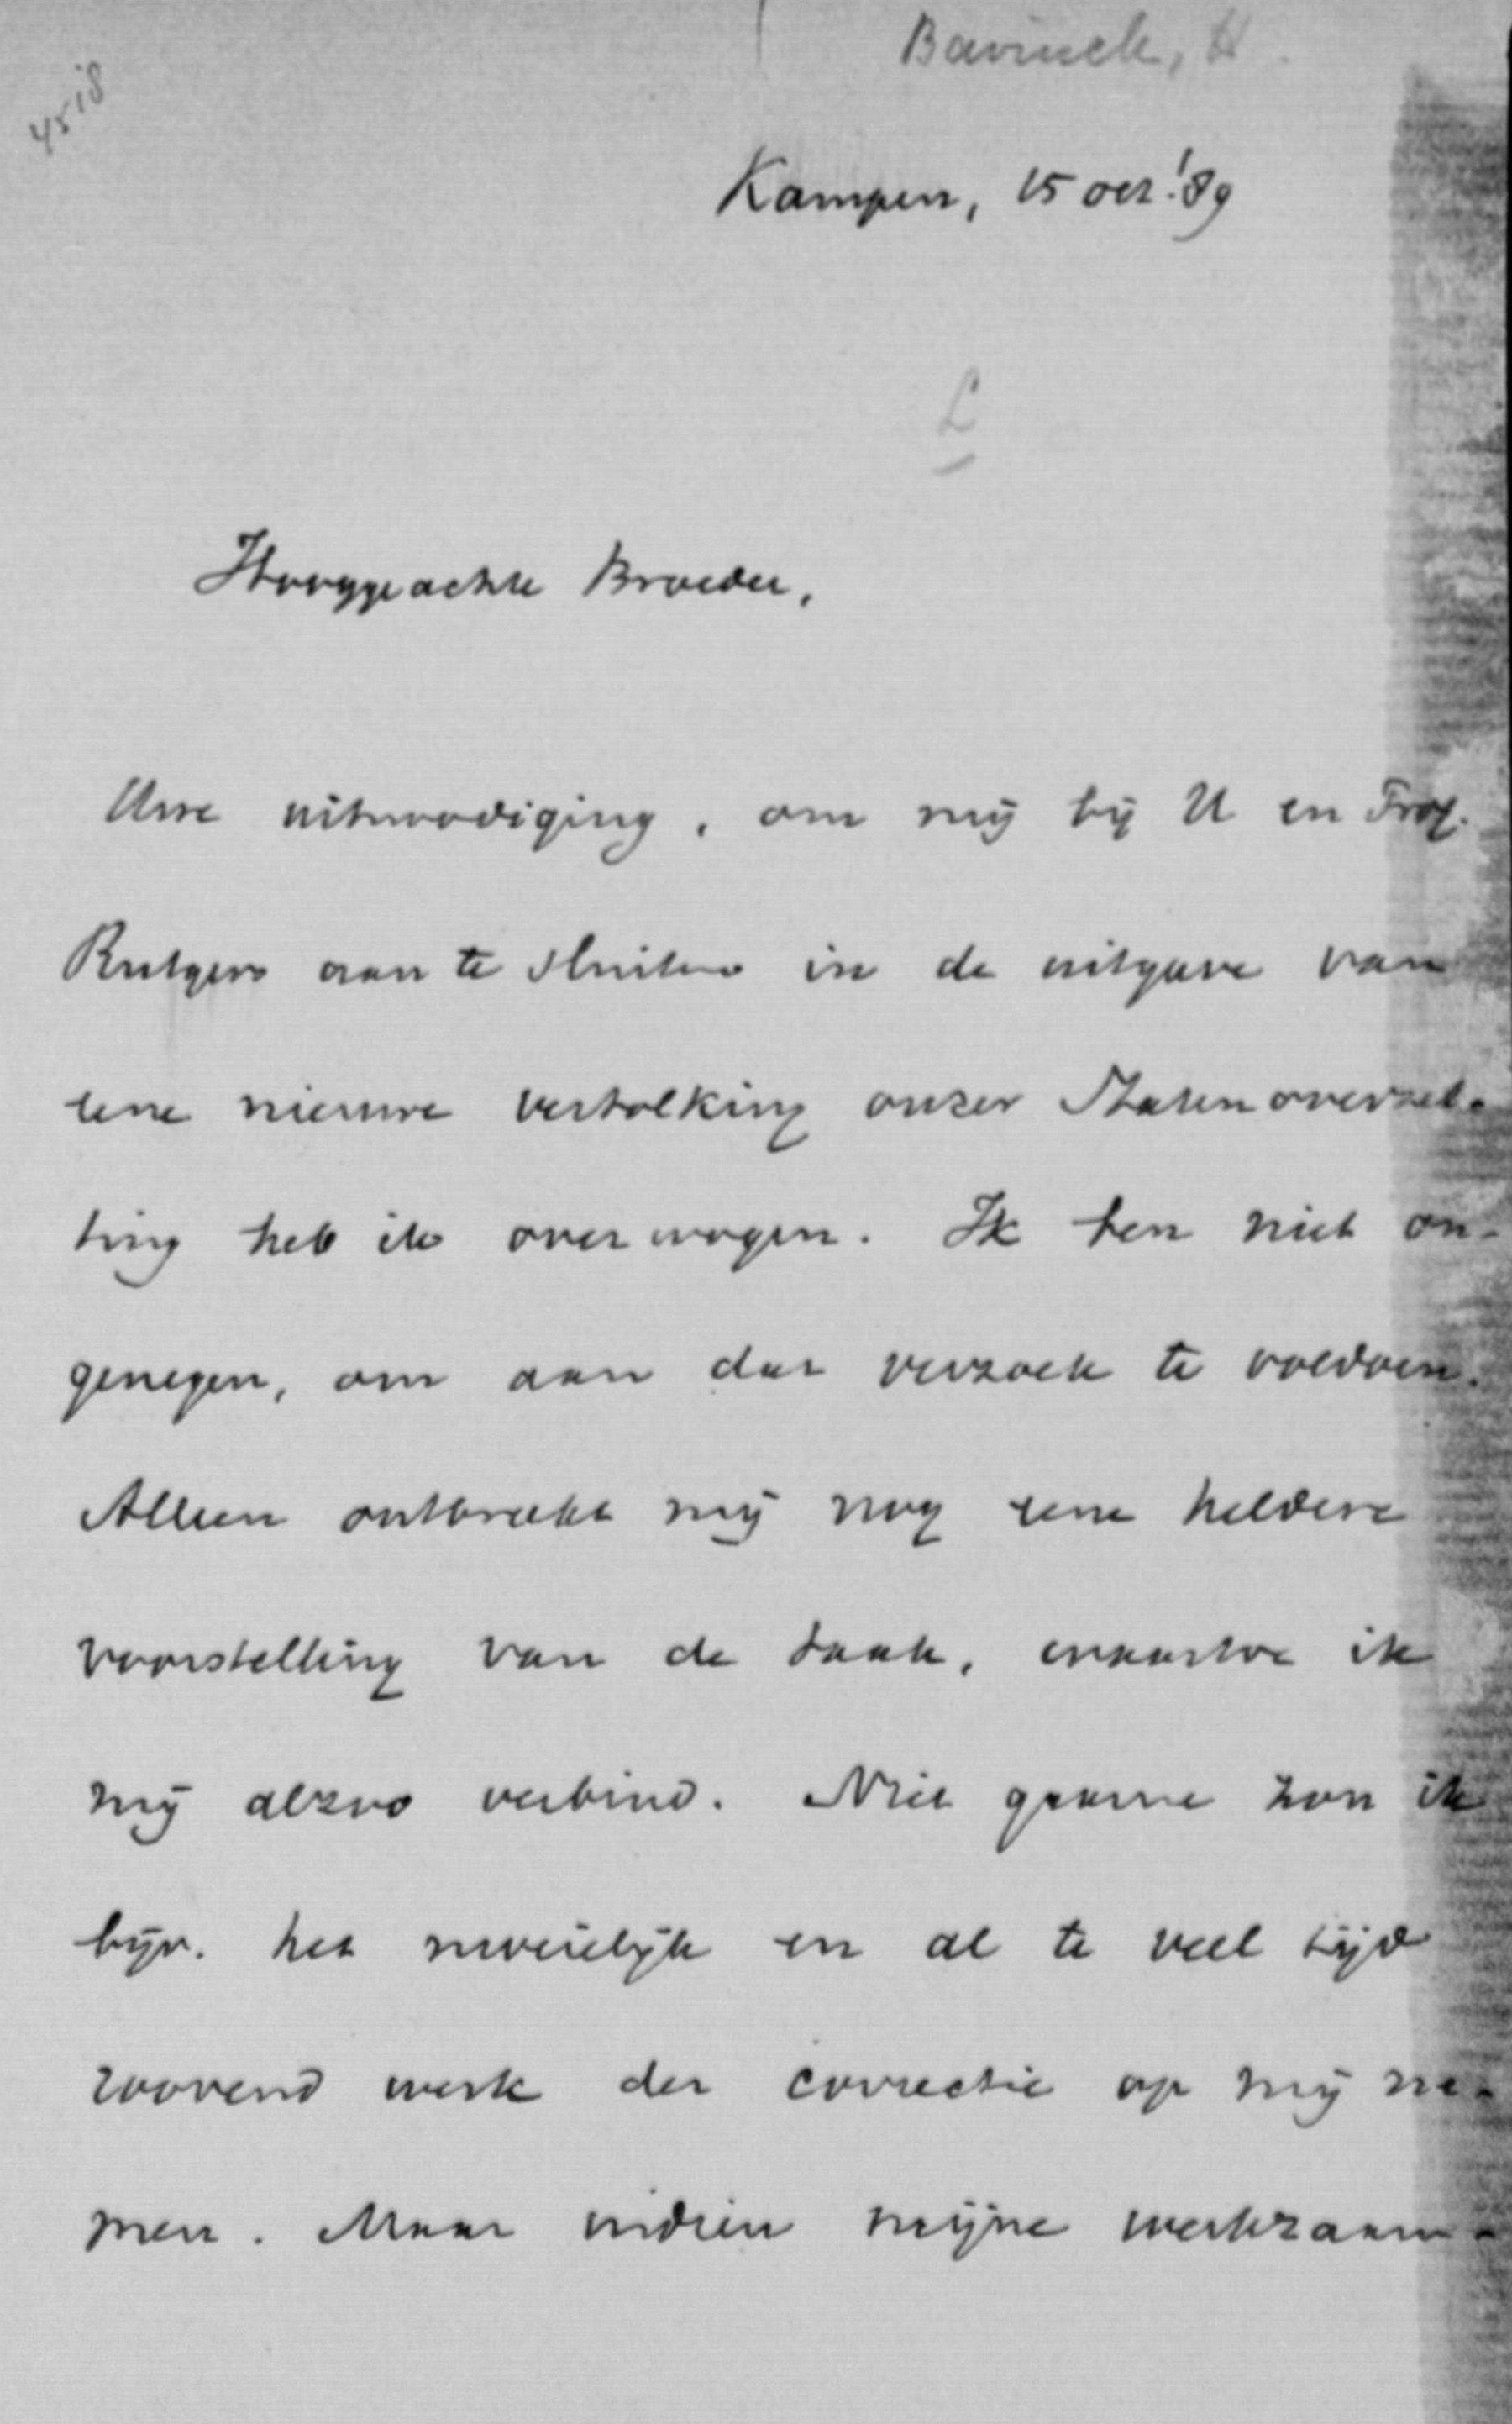 Bavinck, H.
4518
Kampen, 15 oct. '89
L
Hooggeachte Broeder,
Uwe uitnoodiging, om mij bij U en Prof.
Rutgers aan te sluiten in de uitgave van
eene nieuwe vertolking onzer Statenoverzet-
ting heb ik overwogen. Ik ben niet on-
genegen, om aan dat verzoek te voldoen.
Alleen ontbreekt mij nog eene heldere
voorstelling van de taak, waartoe ik
mij alzoo verbind. Niet gaarne zou ik
bijv. het moeielijk en al te veel tijd
roovend werk der correctie op mij ne-
men. Maar indien mijne werkzaam-